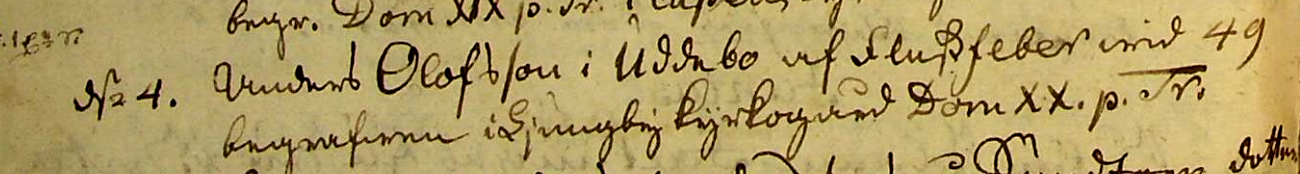 begr. Dom XIX p. Tr. i
ds 4. Anders Olofsson i Uddebo af Flussfeber wid 49
begrafwen i Ljungby kyrkogård Dom XX. p. Tr.
dotter